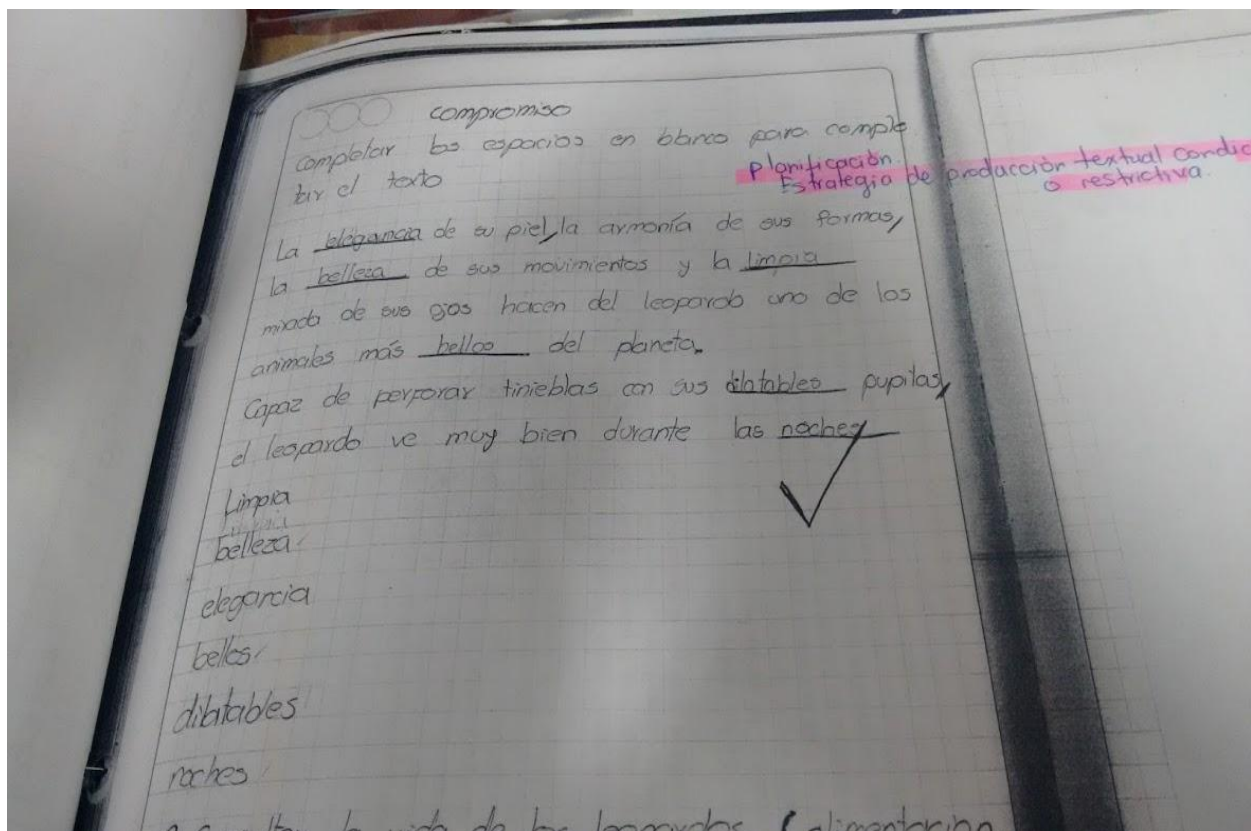 compromiso
completar los espacios en blanco para comple
tar el texto
Planificación.
Estrategia de producción textual condic
o restrictiva.
La elegancia de su piel, la armonía de sus formas,
la belleza de sus movimientos y la limpia
mirada de sus ojos hacen del leopardo uno de los
animales más bellos del planeta.
Capaz de perforar tinieblas con sus dilatables pupilas,
el leopardo ve muy bien durante las noches
Limpia
belleza
elegancia
bellos
dilatables
noches
la vida de los leopardos (alimentación